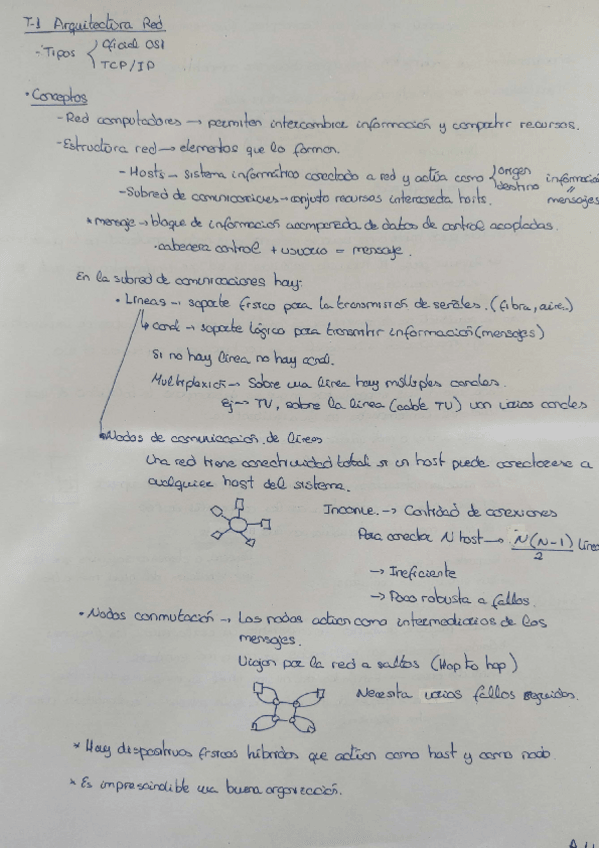 T-1 Arquitectura Red
- Tipos { Oficial OSI
TCP/IP
• Conceptos
- Red computadores → permiten intercambiar información y compartir recursos.
- Estructura red → elementos que lo forman.
- Hosts → sistema informático conectado a red y actúa como { origen destino información = mensajes
- Subred de comunicaciones → conjunto recursos interconecta hosts.
* mensaje → bloque de información acompañada de datos de control acoplados.
• cabecera control + usuario = mensaje.
En la subred de comunicaciones hay:
• Líneas → soporte físico para la transmisión de señales. (fibra, aire)
↳ canal → soporte lógico para transmitir información (mensajes)
Si no hay línea no hay canal.
Multiplexión → Sobre una línea hay múltiples canales.
Ej → TV, sobre la línea (cable TV) van varios canales
• Nodos de comunicación de líneas
Una red tiene conectividad total si un host puede conectarse a
cualquier host del sistema.
Inconve. → Cantidad de conexiones
Para conectar N host → N(N-1)/2 líne
→ Ineficiente
→ Poco robusta a fallos.
• Nodos conmutación → Los nodos actúan como intermediarios de los
mensajes.
Viajan por la red a saltos (Hop to hop)
Necesita varios fallos seguidos.
* Hay dispositivos físicos híbridos que actúan como host y como nodo.
* Es imprescindible una buena organización.